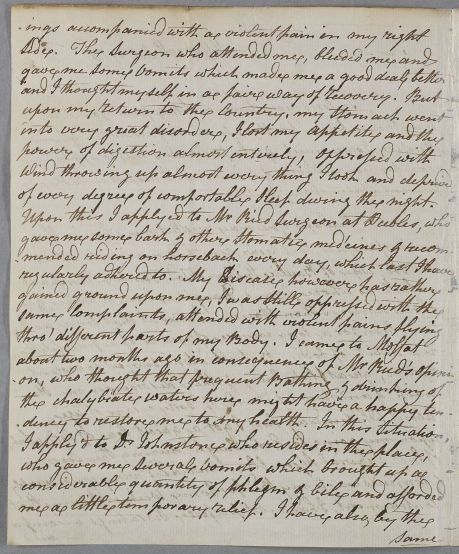 ings accompanied with a violent pain in my right
side. The Surgeon who attended me, bleeded me and
gave me some vomits which made me a good deal better
and I thought myself in a fair way of recovery. But
upon my return to the Country, my Stomach went
into very great disorder, I lost my appetite and the
power of digestion almost entirely, oppressed with
wind throwing up almost every thing I took and deprived
of every degree of comfortable sleep during the night.
Upon this I applyed to Mr Reid Surgeon at Peebles, who
gave me some bark & other Stomatic medicines & recom
mended riding on horseback every day, which last I have
regularly adhered to. My Disease however has rather
gained ground upon me, I was still oppressed with the
same Complaints, attended with violent pains flying
thro' different parts of my Body. I came to Moffat
about two months ago in consequence of Mr Reids opini
on, who thought that frequent Bathing & drinking of
the chalybiate waters here might have a happy ten
dency to restore me to my health. In this Situation,
I applyd to Dr Johnstone who resides in the place,
who gave me several vomits which brought up a
considerable quantity of phlegm & bile and afforded
me a little temporary relief. I have also by the
same